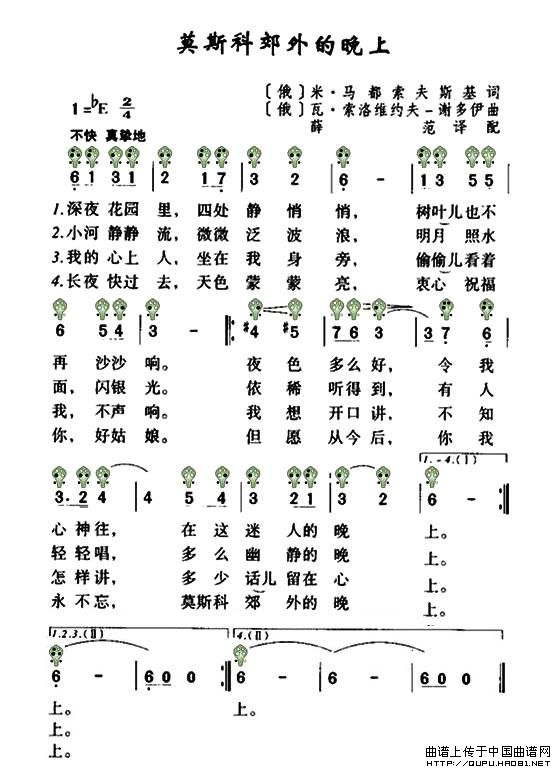 莫斯科郊外的晚上
〔俄〕米·马都索夫斯基词
1=♭E 2/4
〔俄〕瓦·索洛维约夫-谢多伊曲
薛 范译配
不快 真挚地
6 1 3 1 | 2 1 7 | 3 2 | 6 - | 1 3 5 5 |
1.深夜 花园 里， 四处 静 悄 悄， 树叶儿也不
2.小河 静静 流， 微微 泛 波 浪， 明月 照水
3.我的 心上 人， 坐在 我 身 旁， 偷偷儿看着
4.长夜 快过 去， 天色 蒙 蒙 亮， 衷心 祝福
6 5 4 | 3 - :‖: #4 #5 | 7 6 3 | 3 7 6 |
再 沙沙 响。 夜 色 多么 好， 令 我
面， 闪银 光。 依 稀 听得 到， 有 人
我， 不声 响。 我 想 开口 讲， 不 知
你， 好姑 娘。 但 愿 从今 后， 你 我
1.-4.(Ⅰ)
3·2 4 | 4 5 4 | 3 2 1 | 3 2 | 6 - :‖
心 神往， 在 这 迷 人的 晚 上。
轻 轻唱， 多 么 幽 静的 晚 上。
怎 样讲， 多 少 话儿 留在 心 上。
永 不忘， 莫斯科 郊 外的 晚 上。
1.2.3.(Ⅱ) 4.(Ⅱ)
6 - | 6 0 0 0 :‖ 6 - | 6 - | 6 0 0 ‖
上。 上。
上。
上。
曲谱上传于中国曲谱网
HTTP://QUPU.HAO81.NET